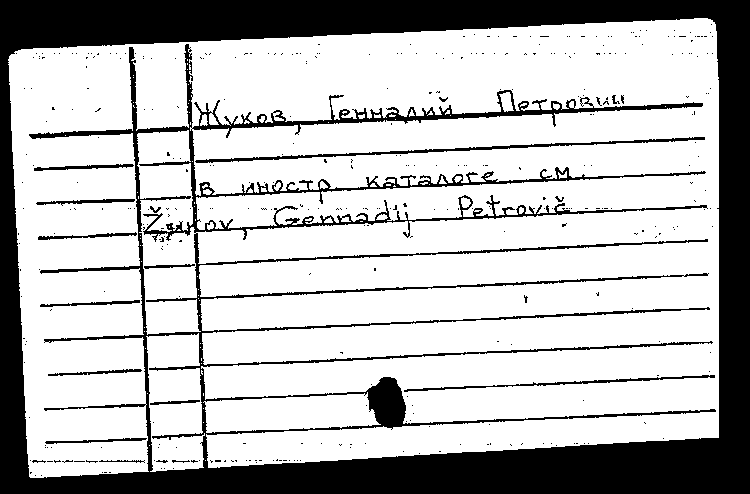 Жуков, Геннадий Петрович
в иностр. каталоге см.
Žukov, Gennadij Petrovič